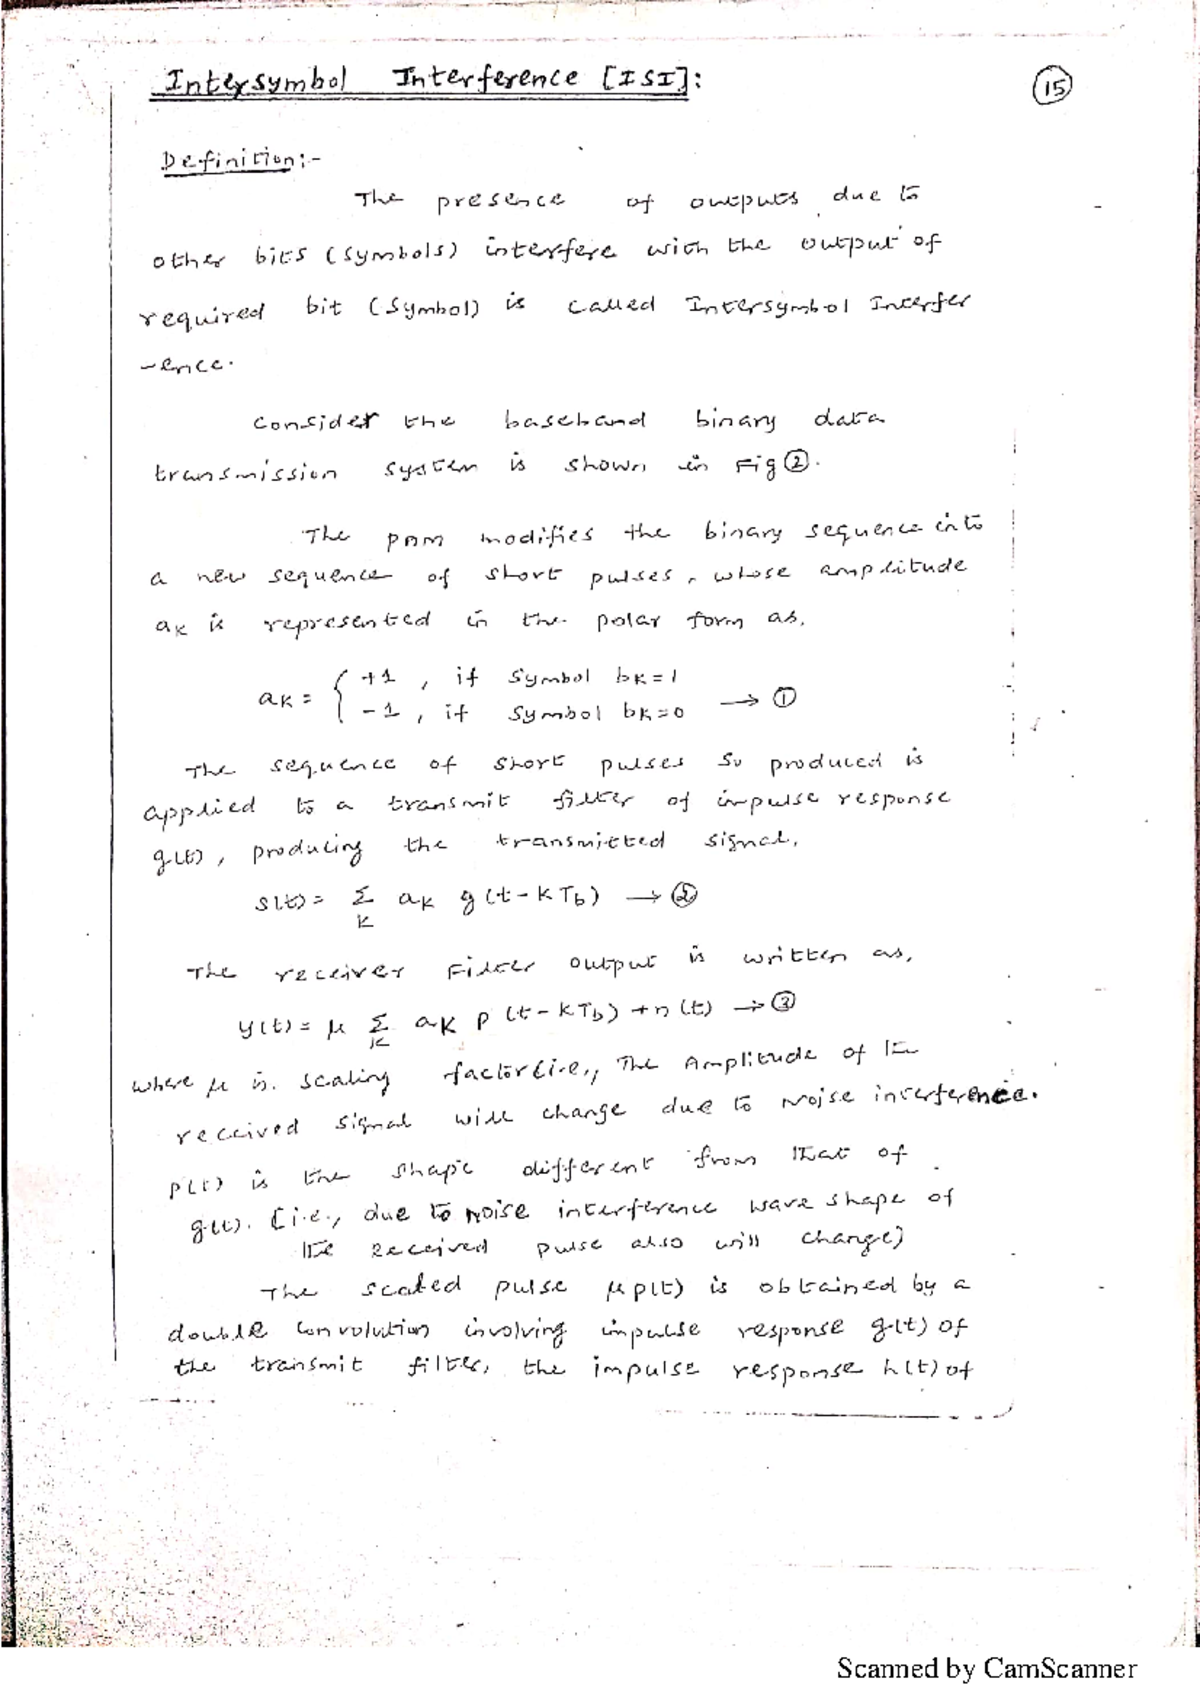 Intersymbol Interference [ISI]:
15
Definition:-
The presence of outputs due to
other bits (symbols) interfere with the output of
required bit (symbol) is called Intersymbol Interfer
-ence.
Consider the baseband binary data
transmission system is shown in Fig ②.
The PAM modifies the binary sequence into
a new sequence of short pulses, whose amplitude
aK is represented in the polar form as,
aK = { +1 , if symbol bK=1
-1 , if symbol bK=0 → ①
The sequence of short pulses so produced is
applied to a transmit filter of impulse response
g(t), producing the transmitted signal,
s(t) = Σ aK g(t-KTb) → ②
K
The receiver Filter output is written as,
y(t) = μ Σ aK P(t-KTb) + n(t) → ③
K
where μ is scaling factor(i.e., The Amplitude of the
received signal will change due to Noise interference.
P(t) is the shape different from that of
g(t). [i.e., due to Noise interference wave shape of
the Received pulse also will change]
The scaled pulse μp(t) is obtained by a
double convolution involving impulse response g(t) of
the transmit filter, the impulse response h(t) of
Scanned by CamScanner